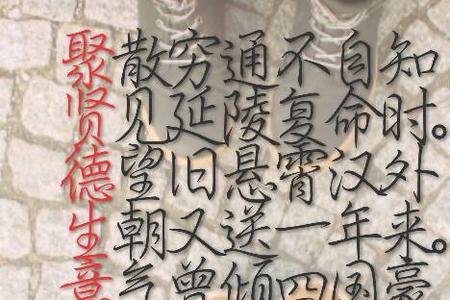 聚散穷通不自知
贤见延陵复命时。
德望旧悬霄汉外
生朝又送一年来。
意气曾倾四国豪